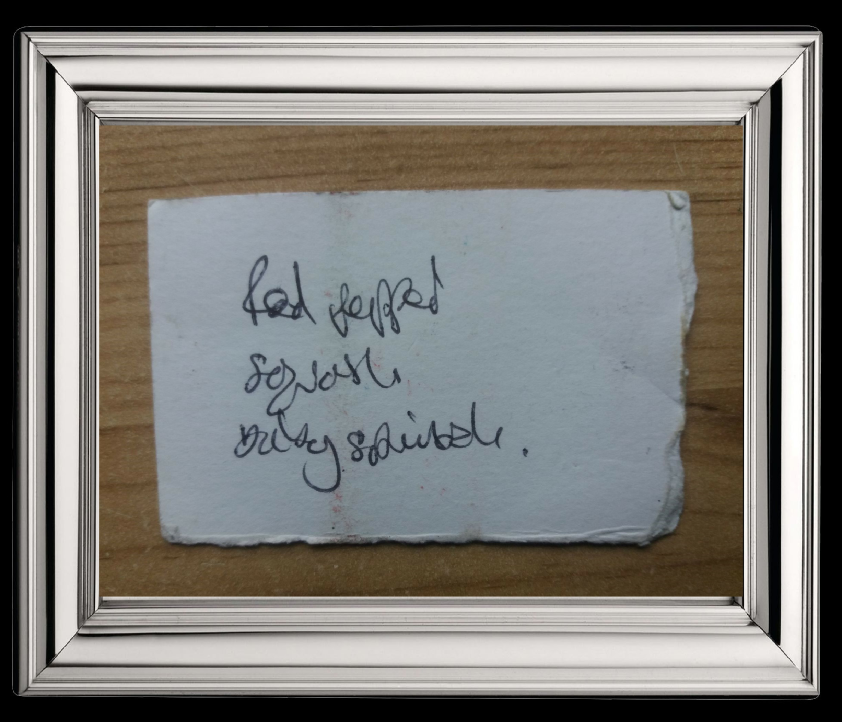 Red pepper
squash
baby spinach.